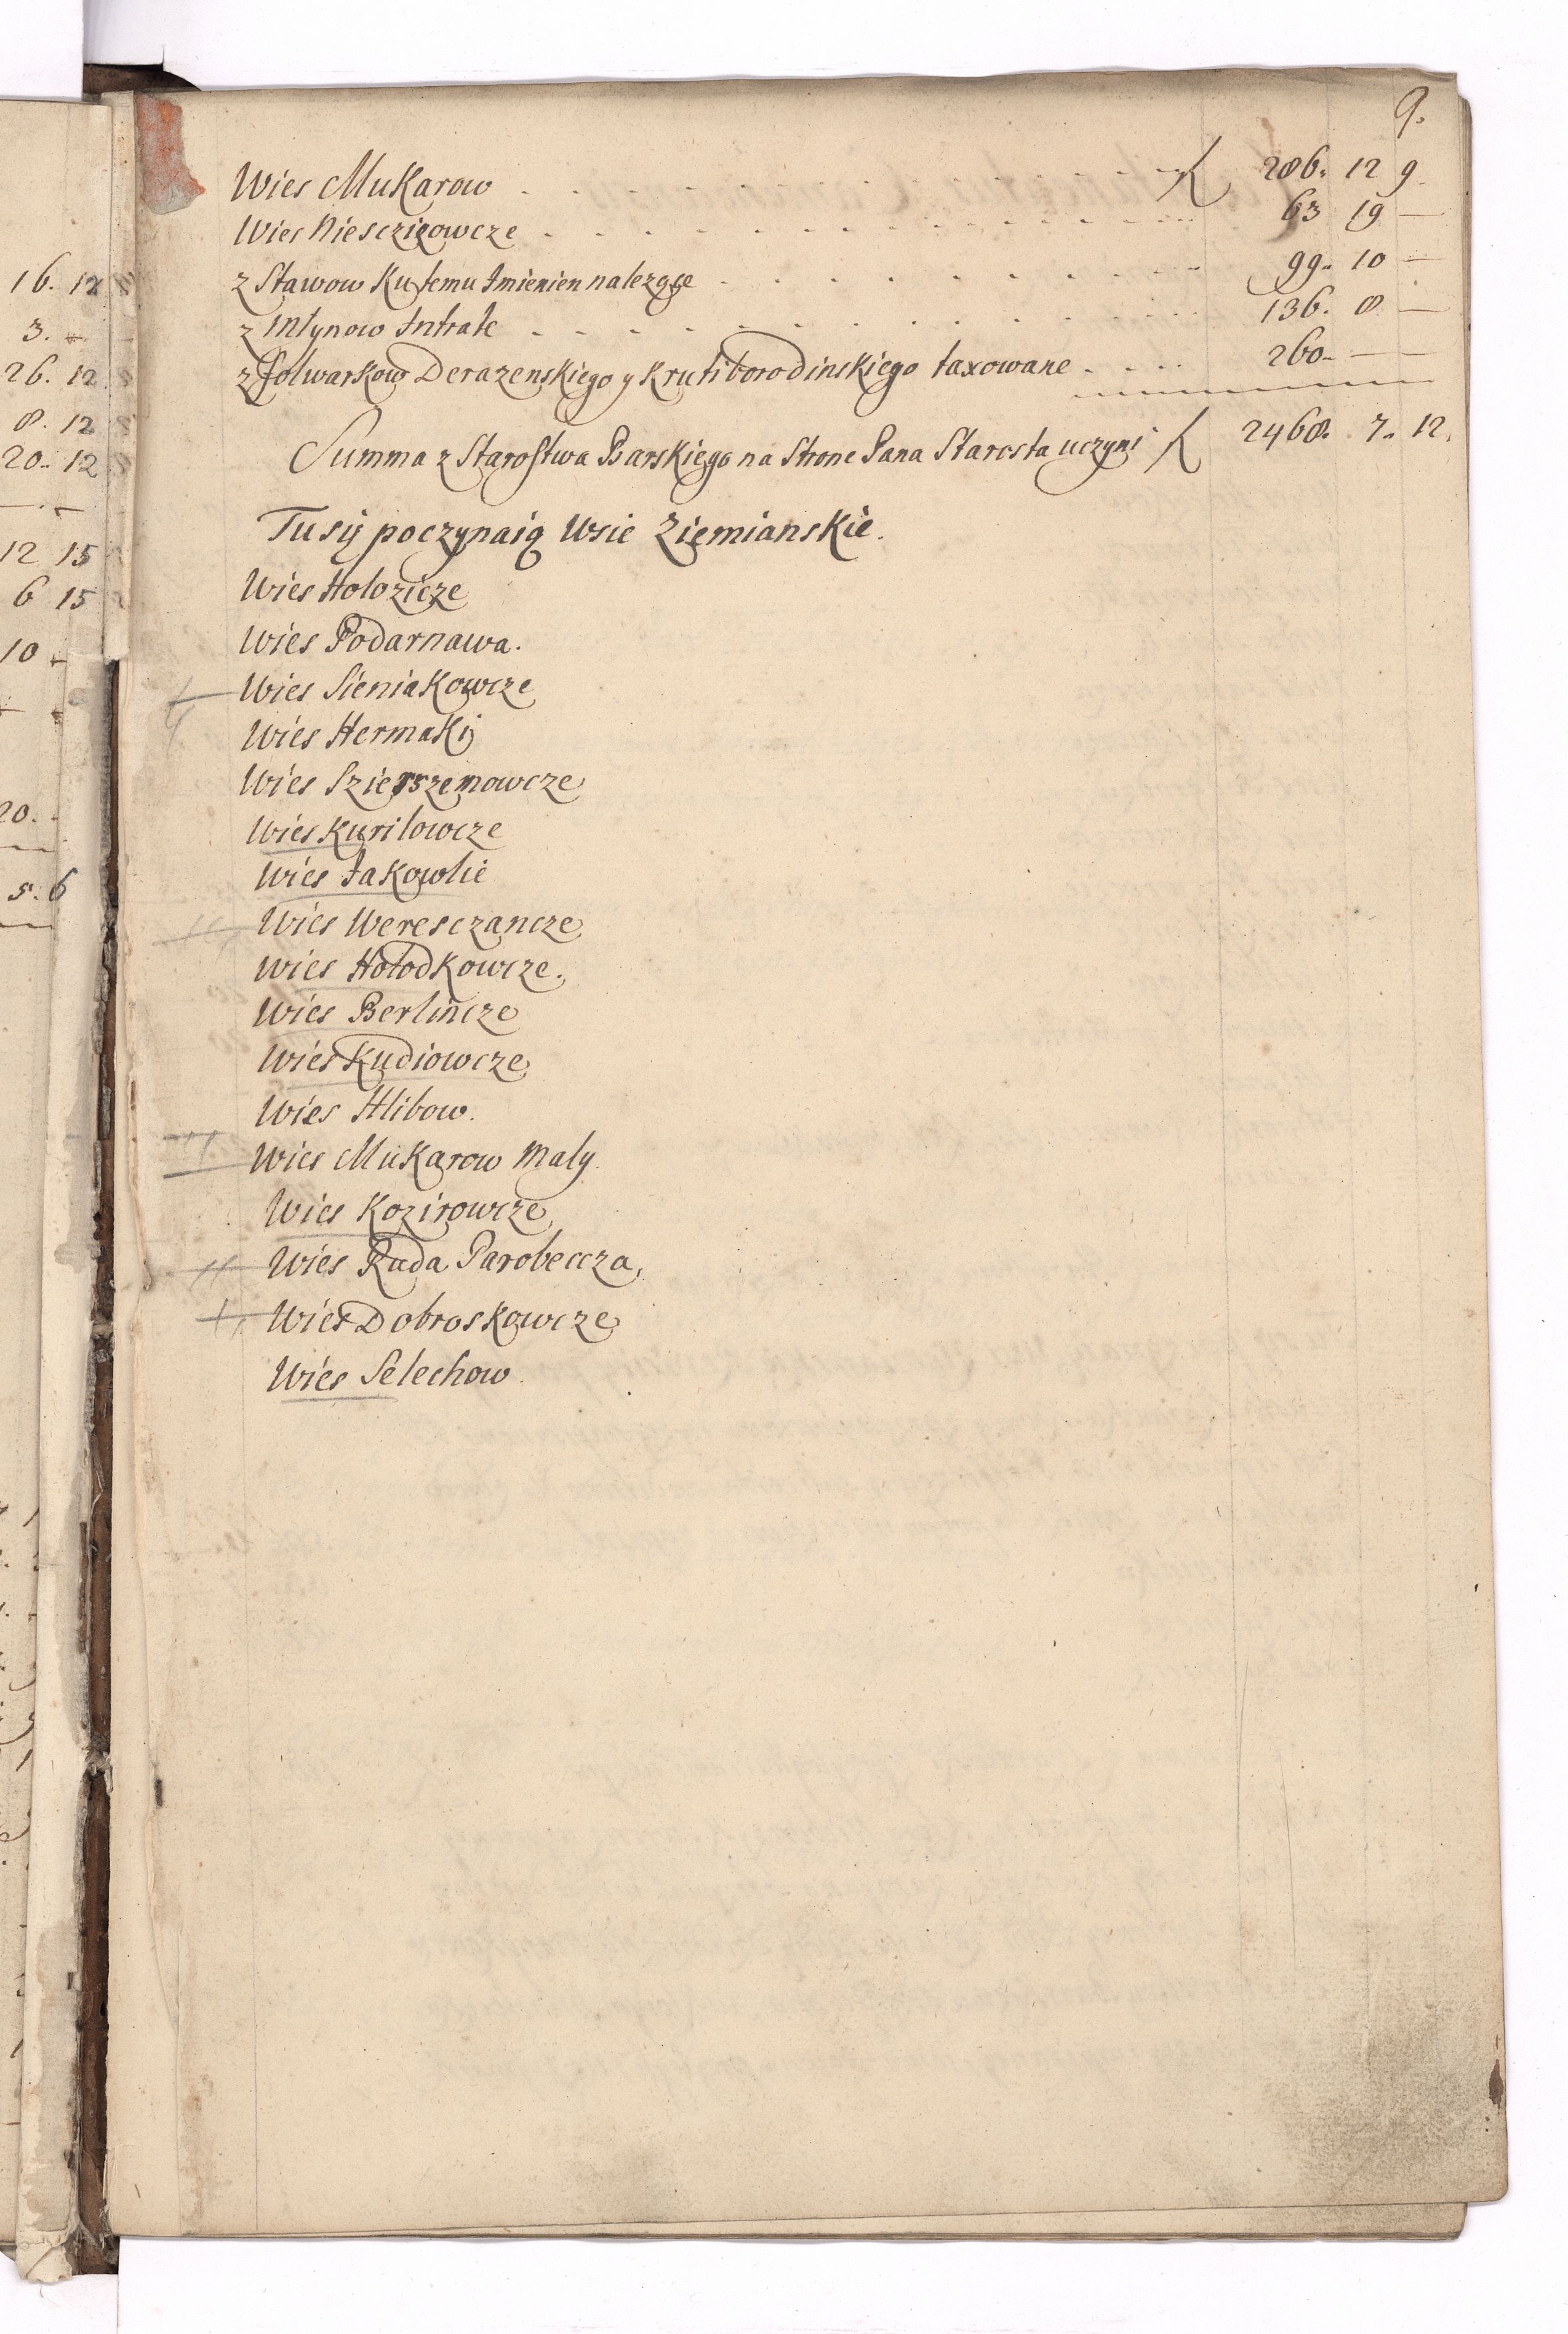 9.
Wies Mukarow . . . . . . . . . . 286. 12 9
Wies Niesczięowcze . . . . . . . . . . 63 19 —
z Stawow Ku temu Imienien nalezące . . . . . . . . 99. 10 —
z Młynow Intrate . . . . . . . . . . 136. 8 —
z Folwarkow Derazenskiego y Krutiborodinskiego taxowane . . . . 260 — —
Summa z Starostwa Barskiego na Strone Pana Starosta uczyni 2468. 7. 12.
Tu się poczynaią Wsie Ziemianskie.
Wies Holozicze
Wies Podarnawa.
Wies Sieniakowcze
Wies Hermaki
Wies Szierszenowcze
Wies Kurilowcze
Wies Jakowlie
Wies Weresczancze
Wies Hołodkowcze.
Wies Berlincze
Wies Kudiowcze
Wies Hlibow.
Wies Mukarow Maly.
Wies Kozirowcze
Wies Ruda Parobeccza,
Wies Dobroskowcze
Wies Selechow.
16. 12
3.
26. 12
8. 12
20. 12
12 15
6 15
10
20.
5. 6